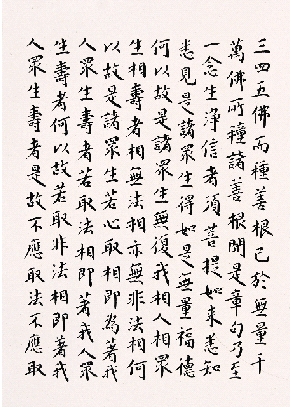 三四五佛而種善根已於無量千
萬佛所種諸善根聞是章句乃至
一念生淨信者須菩提如來悉知
悉見是諸眾生得如是無量福德
何以故是諸眾生無復我相人相眾
生相壽者相無法相亦無非法相何
以故是諸眾生若心取相即為著我
人眾生壽者若取法相即著我人眾
生壽者何以故若取非法相即著我
人眾生壽者是故不應取法不應取